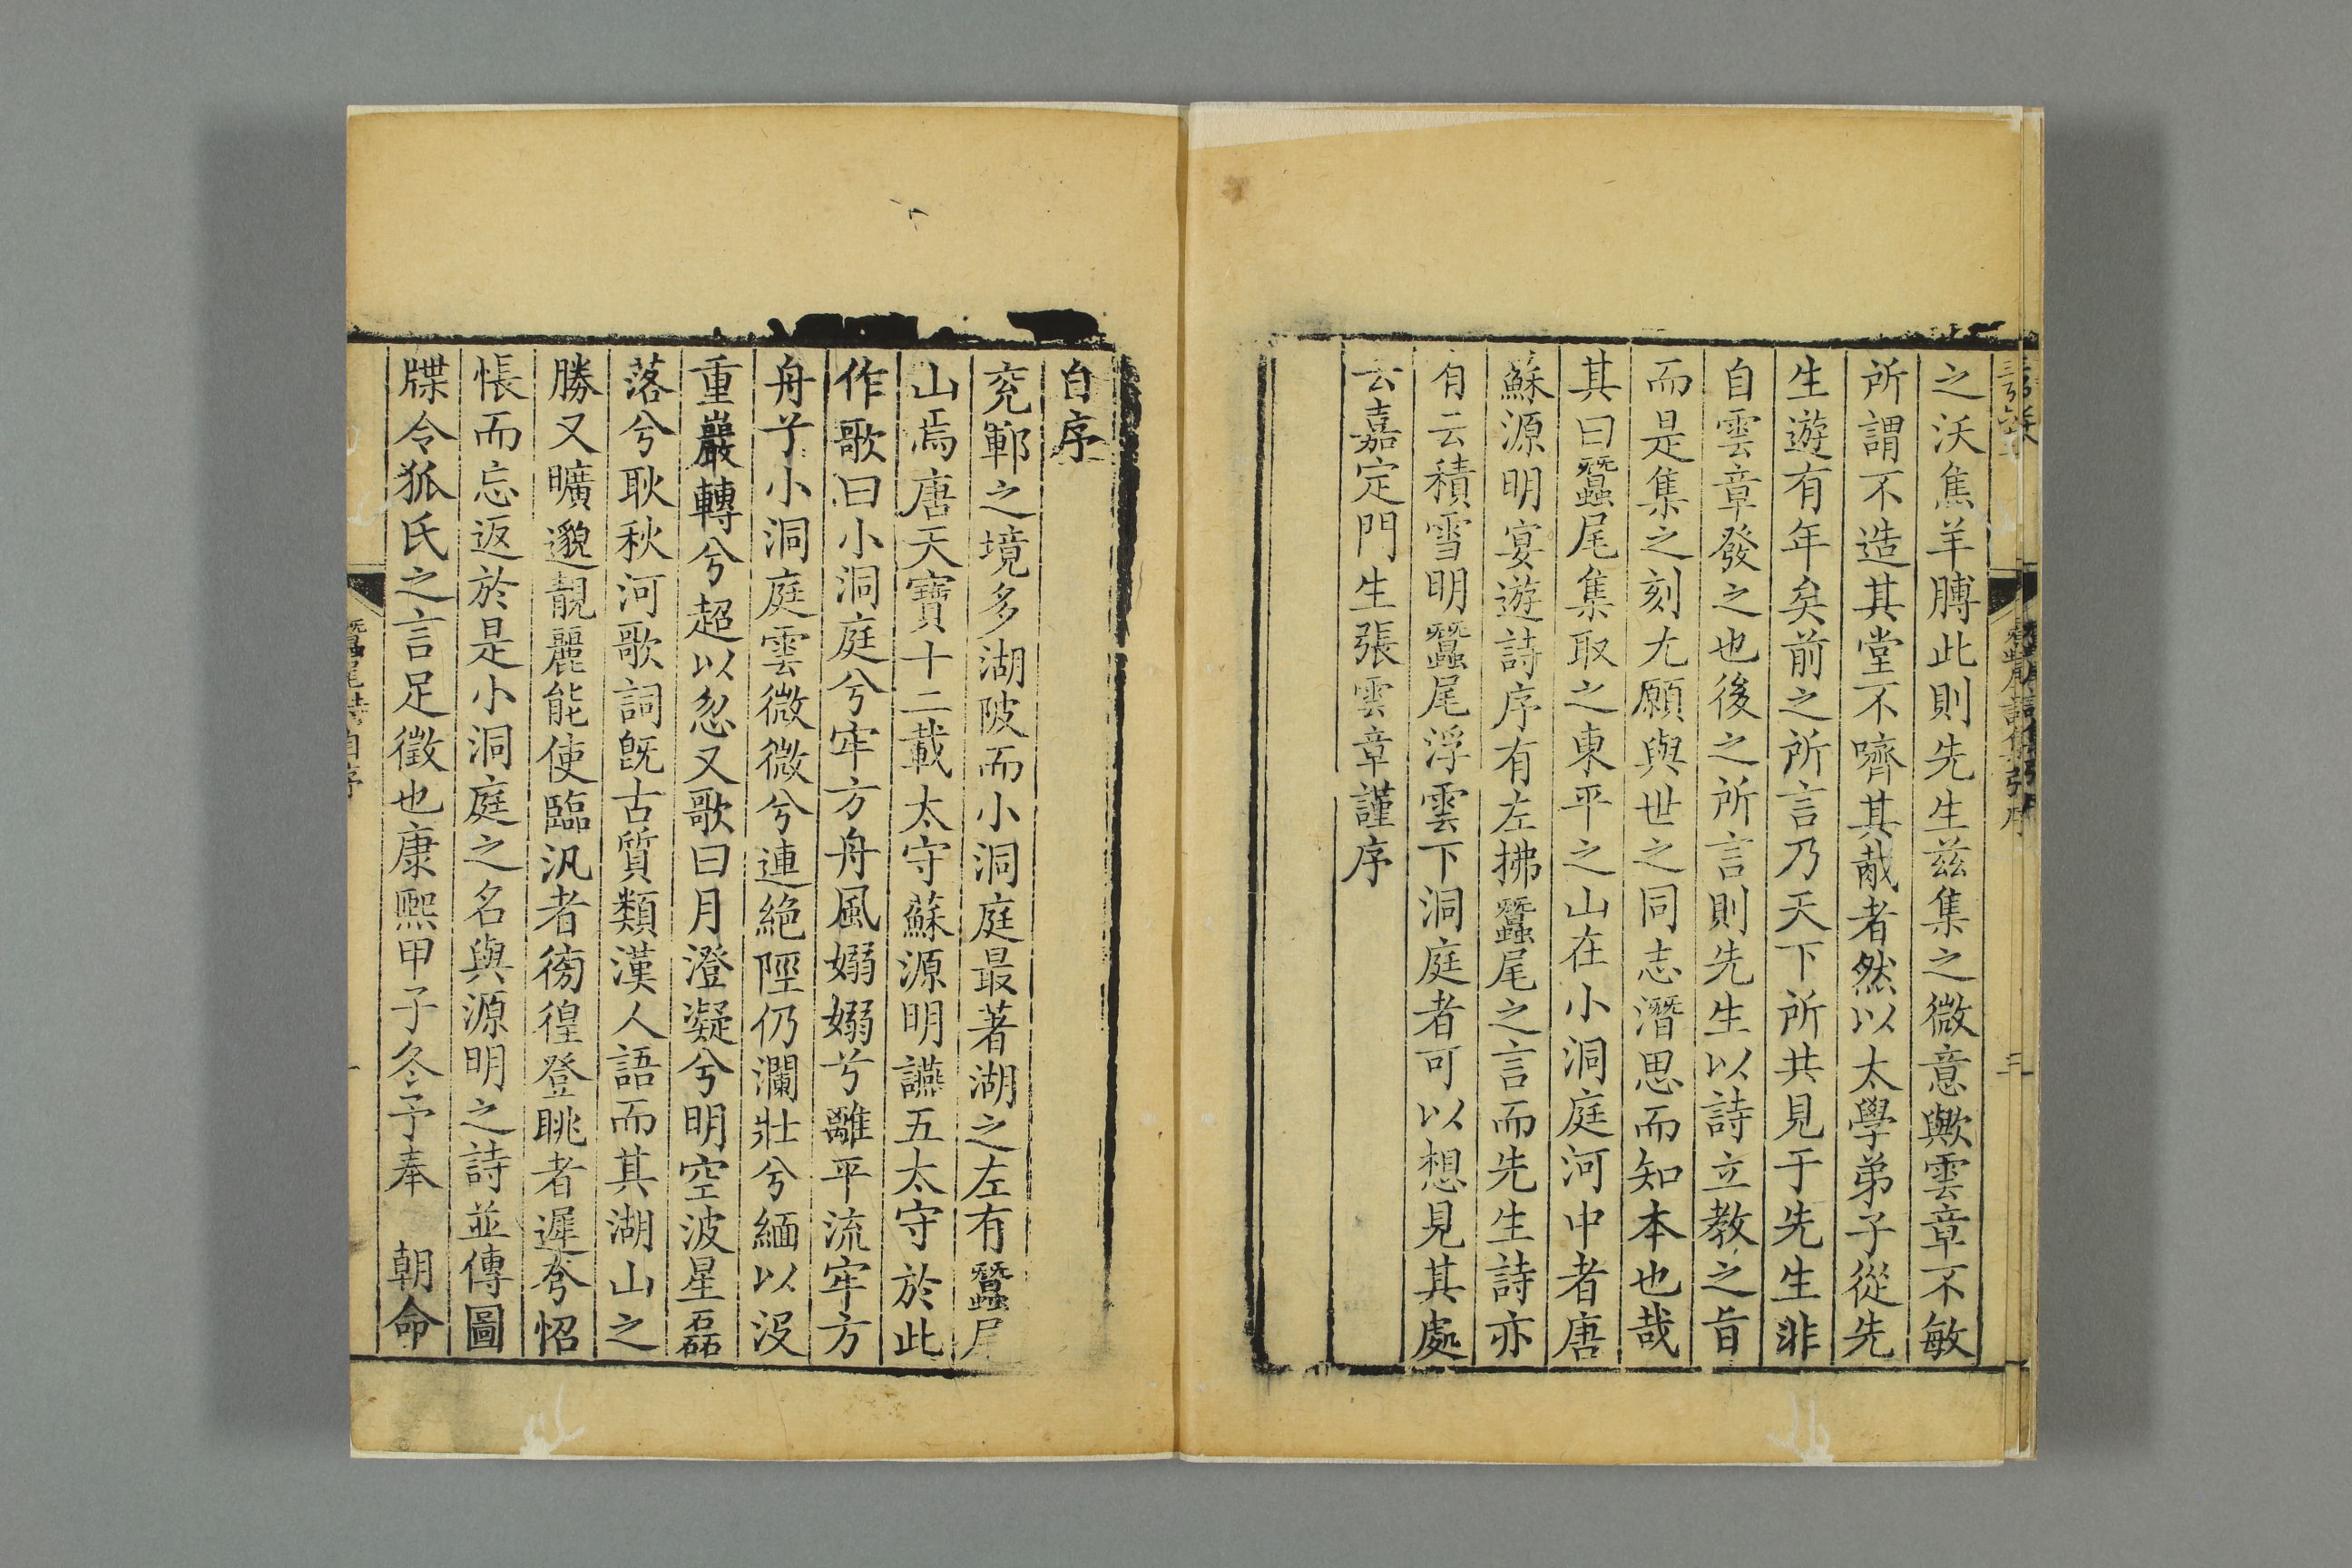 之沃焦羊膊此則先生茲集之微意歟雲章不敏
所謂不造其堂不嚌其胾者然以太學弟子從先
生遊有年矣前之所言乃天下所共見于先生非
自雲章發之也後之所言則先生以詩立教之旨
而是集之刻尤願與世之同志潛思而知本也哉
其曰蠶尾集取之東平之山在小洞庭河中者唐
蘇源明宴遊詩序有左拂蠶尾之言而先生詩亦
有云積雪明蠶尾浮雲下洞庭者可以想見其處
云嘉定門生張雲章謹序
自序
兖鄆之境多湖陂而小洞庭最著湖之左有蠶尾
山焉唐天寶十二載太守蘇源明讌五太守於此
作歌曰小洞庭兮牢方舟風嫋嫋兮離平流牢方
舟兮小洞庭雲微微兮連絶陘仍瀾壯兮緬以沒
重巖轉兮超以忽又歌曰月澄凝兮明空波星磊
落兮耿秋河歌詞旣古質類漢人語而其湖山之
勝又曠邈靚麗能使臨汎者徬徨登眺者遲夸怊
悵而忘返於是小洞庭之名與源明之詩並傳圖
牒令狐氏之言足徵也康熙甲子冬予奉　朝命
蠶尾詩自序